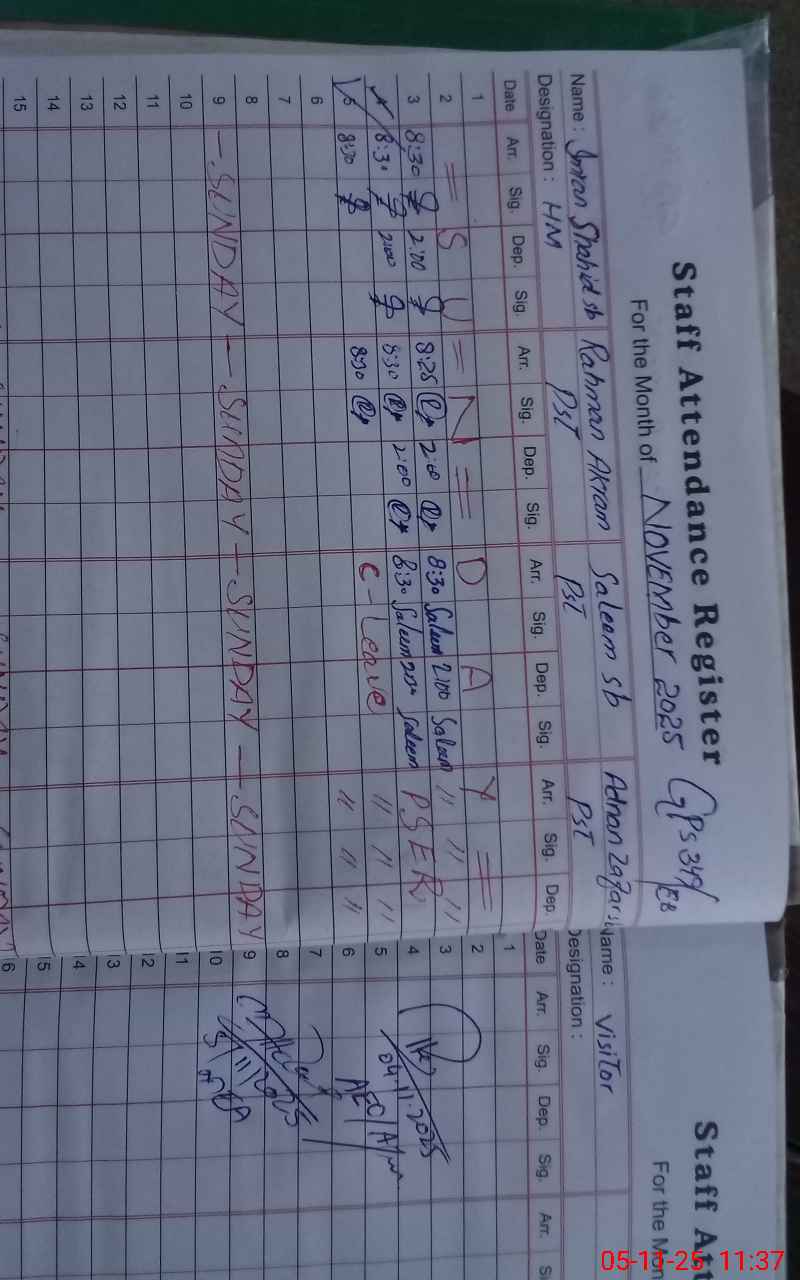 Staff Attendance Register
For the Month of NOVEMBER 2025 GPS 349/EB
Name : Imran Shahid sb Rahman Akram Saleem sb Adnan Zafar
Designation : HM PST PST PST
Date Arr. Sig. Dep. Sig. Arr. Sig. Dep. Sig. Arr. Sig. Dep. Sig. Arr. Sig. Dep.
1
2 = S U = N = D A Y =
3 8:30 2:00 8:25 2:00 8:30 Saleem 2:00 Saleem " " "
4 8:30 2:00 8:30 2:00 8:30 Saleem Saleem PSER
5 8:30 8:30 C - Leave " " "
" " "
6
7
8
9 - SUNDAY - SUNDAY - SUNDAY - SUNDAY
10
11
12
13
14
15
Staff At
For the Mon
Name : Visitor
Designation :
Date Arr. Sig. Dep. Sig. Arr. Si
1
2
3
4 04.11.2025
5
6 AEO
7
8
9
10
11
12
13
14
15
16
05-11-25 11:37